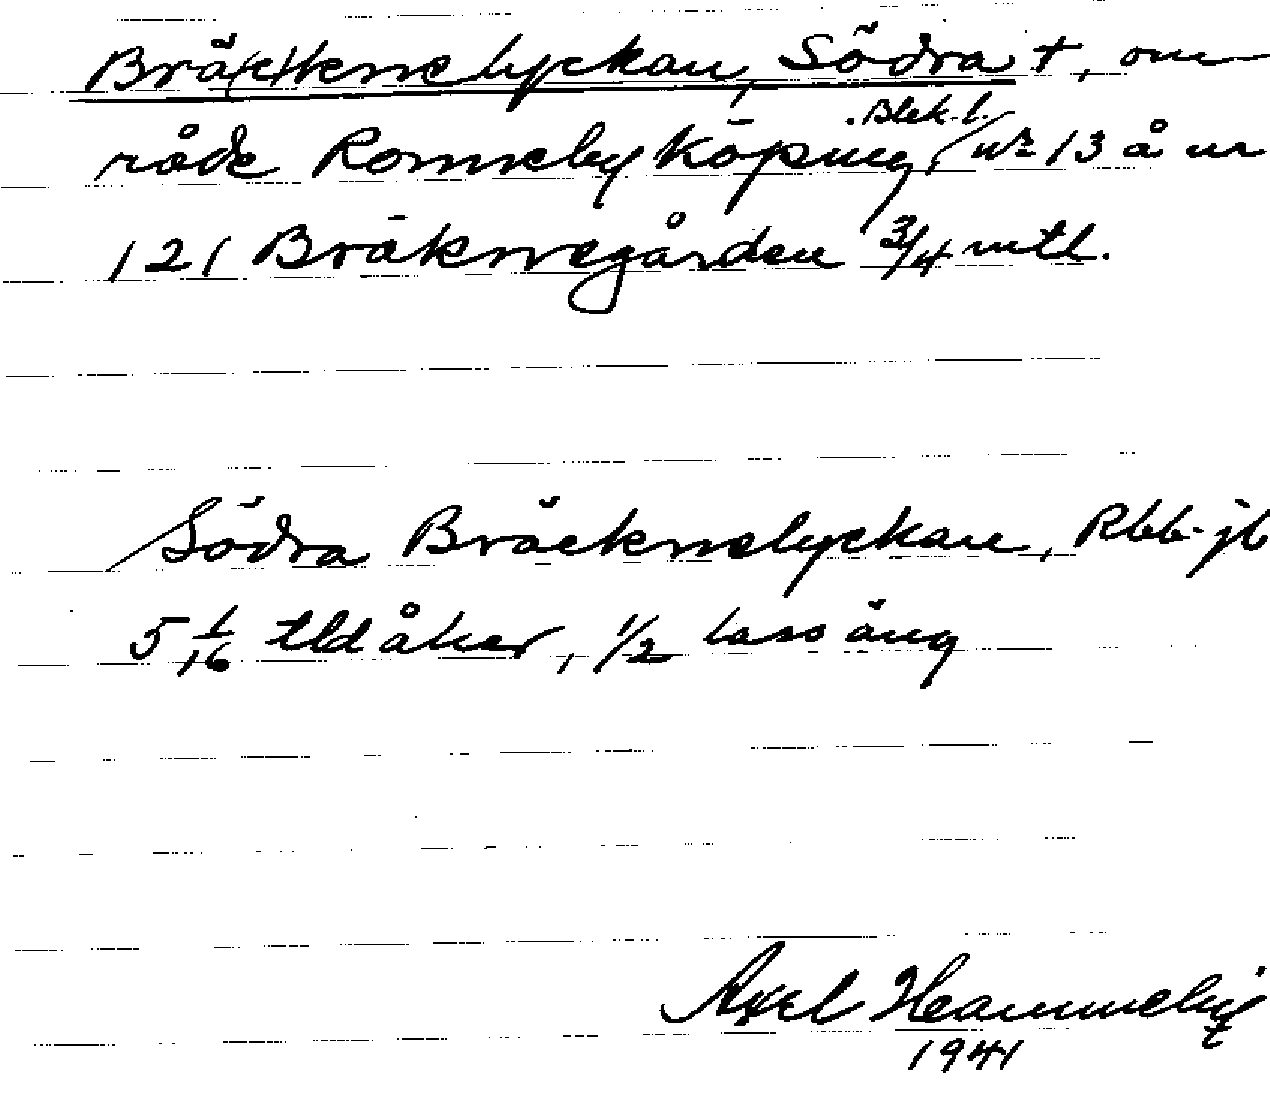 Brä(c)knelyckan, Södra +, om-
råde Ronneby köping, Blek. l. nr 13 å nr
121 Bräknegården 3/4 mtl.
Södra Bräcknelyckan, Rbb-jb
5 1/16 tld åker, 1/2 lass äng
Axel
1941